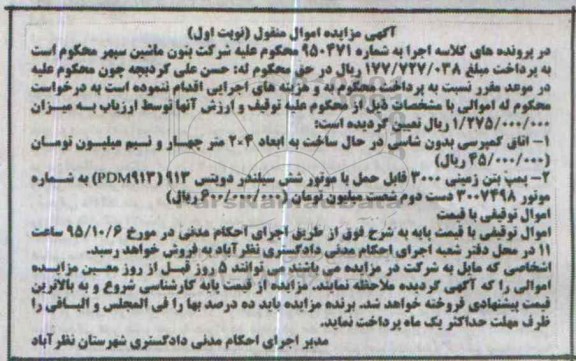 آگهی مزایده اموال منقول (نوبت اول)
در پرونده های کلاسه اجرا به شماره ۹۵۰۴۷۱ محکوم علیه شرکت بتون ماشین سپهر محکوم است
به پرداخت مبلغ ۱۷۷/۷۲۷/۰۳۸ ریال در حق محکوم له: حسن علی کردبچه چون محکوم علیه
در موعد مقرر نسبت به پرداخت محکوم به و هزینه های اجرایی اقدام ننموده است به درخواست
محکوم له اموالی با مشخصات ذیل از محکوم علیه توقیف و ارزش آنها توسط ارزیاب به میزان
۱/۲۷۵/۰۰۰/۰۰۰ ریال تعیین گردیده است:
۱- اتاق کمپرسی بدون شاسی در حال ساخت به ابعاد ۲۰۴ متر چهار و نیم میلیون تومان
(۴۵/۰۰۰/۰۰۰ ریال)
۲- پمپ بتن زمینی ۳۰۰۰ قابل حمل با موتور شش سیلندر دویتس ۹۱۳ (PDM۹۱۳) به شماره
موتور ۳۰۰۷۴۹۸ دست دوم شصت میلیون تومان (۶۰۰/۰۰۰/۰۰۰ ریال)
اموال توقیفی با قیمت
اموال توقیفی با قیمت پایه به شرح فوق از طریق اجرای احکام مدنی در مورخ ۹۵/۱۰/۶ ساعت
۱۱ در محل دفتر شعبه اجرای احکام مدنی دادگستری نظرآباد به فروش خواهد رسید.
اشخاصی که مایل به شرکت در مزایده می باشند می توانند ۵ روز قبل از روز معین مزایده
اموالی را که آگهی گردیده ملاحظه نمایند. مزایده از قیمت پایه کارشناسی شروع و به بالاترین
قیمت پیشنهادی فروخته خواهد شد. برنده مزایده باید ده درصد بها را فی المجلس و الباقی را
ظرف مهلت حداکثر یک ماه پرداخت نماید.
مدیر اجرای احکام مدنی دادگستری شهرستان نظرآباد